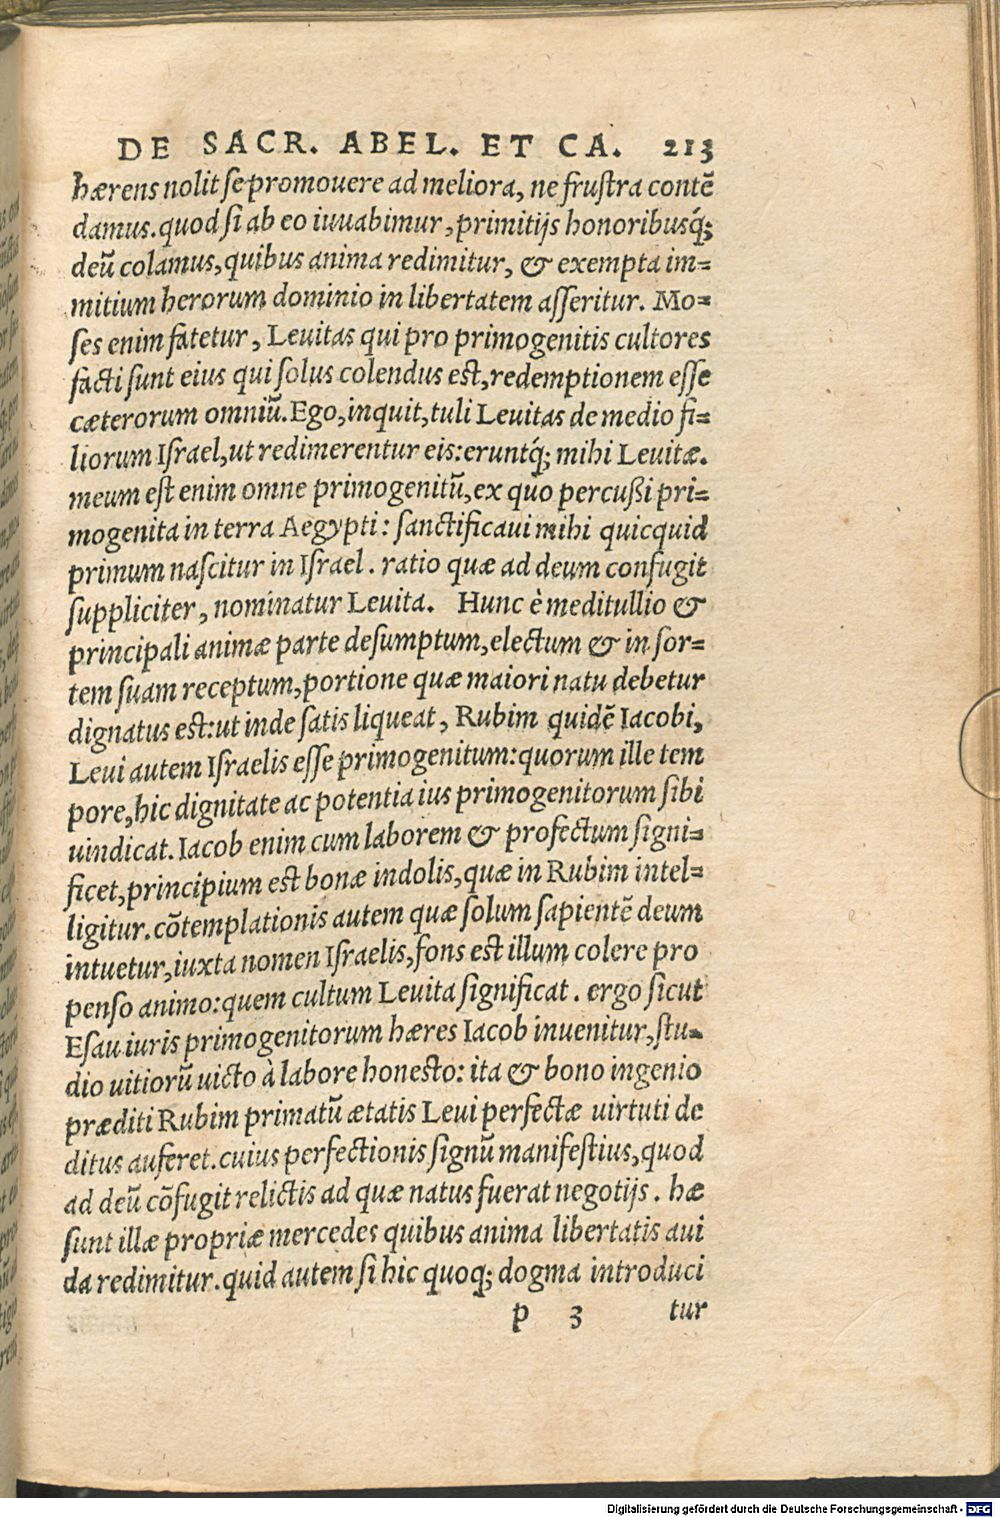 DE SACR. ABEL. ET CA. 213
hærens nolit se promouere ad meliora, ne frustra contē
damus. quod si ab eo iuuabimur, primitijs honoribusq́;
deū colamus, quibus anima redimitur, & exempta im=
mitium herorum dominio in libertatem asseritur. Mo=
ses enim fatetur, Leuitas qui pro primogenitis cultores
facti sunt eius qui solus colendus est, redemptionem esse
cæterorum omniū. Ego, inquit, tuli Leuitas de medio fi=
liorum Israel, ut redimerentur eis: eruntq́; mihi Leuitæ.
meum est enim omne primogenitū, ex quo percußi pri=
mogenita in terra Aegypti: sanctificaui mihi quicquid
primum nascitur in Israel. ratio quæ ad deum confugit
suppliciter, nominatur Leuita. Hunc è meditullio &
principali animæ parte desumptum, electum & in sor=
tem suam receptum, portione quæ maiori natu debetur
dignatus est: ut inde satis liqueat, Rubim quidē Iacobi,
Leui autem Israelis esse primogenitum: quorum ille tem
pore, hic dignitate ac potentia ius primogenitorum sibi
uindicat. Iacob enim cum laborem & profectum signi=
ficet, principium est bonæ indolis, quæ in Rubim intel=
ligitur. cōtemplationis autem quæ solum sapientē deum
intuetur, iuxta nomen Israelis, fons est illum colere pro
penso animo: quem cultum Leuita significat. ergo sicut
Esau iuris primogenitorum hæres Iacob inuenitur, stu=
dio uitiorū uicto à labore honesto: ita & bono ingenio
præditi Rubim primatū ætatis Leui perfectæ uirtuti de
ditus auferet. cuius perfectionis signū manifestius, quod
ad deū cōfugit relictis ad quæ natus fuerat negotijs. hæ
sunt illæ propriæ mercedes quibus anima libertatis aui
da redimitur. quid autem si hic quoq; dogma introduci
p 3 tur
Digitalisierung gefördert durch die Deutsche Forschungsgemeinschaft - DFG